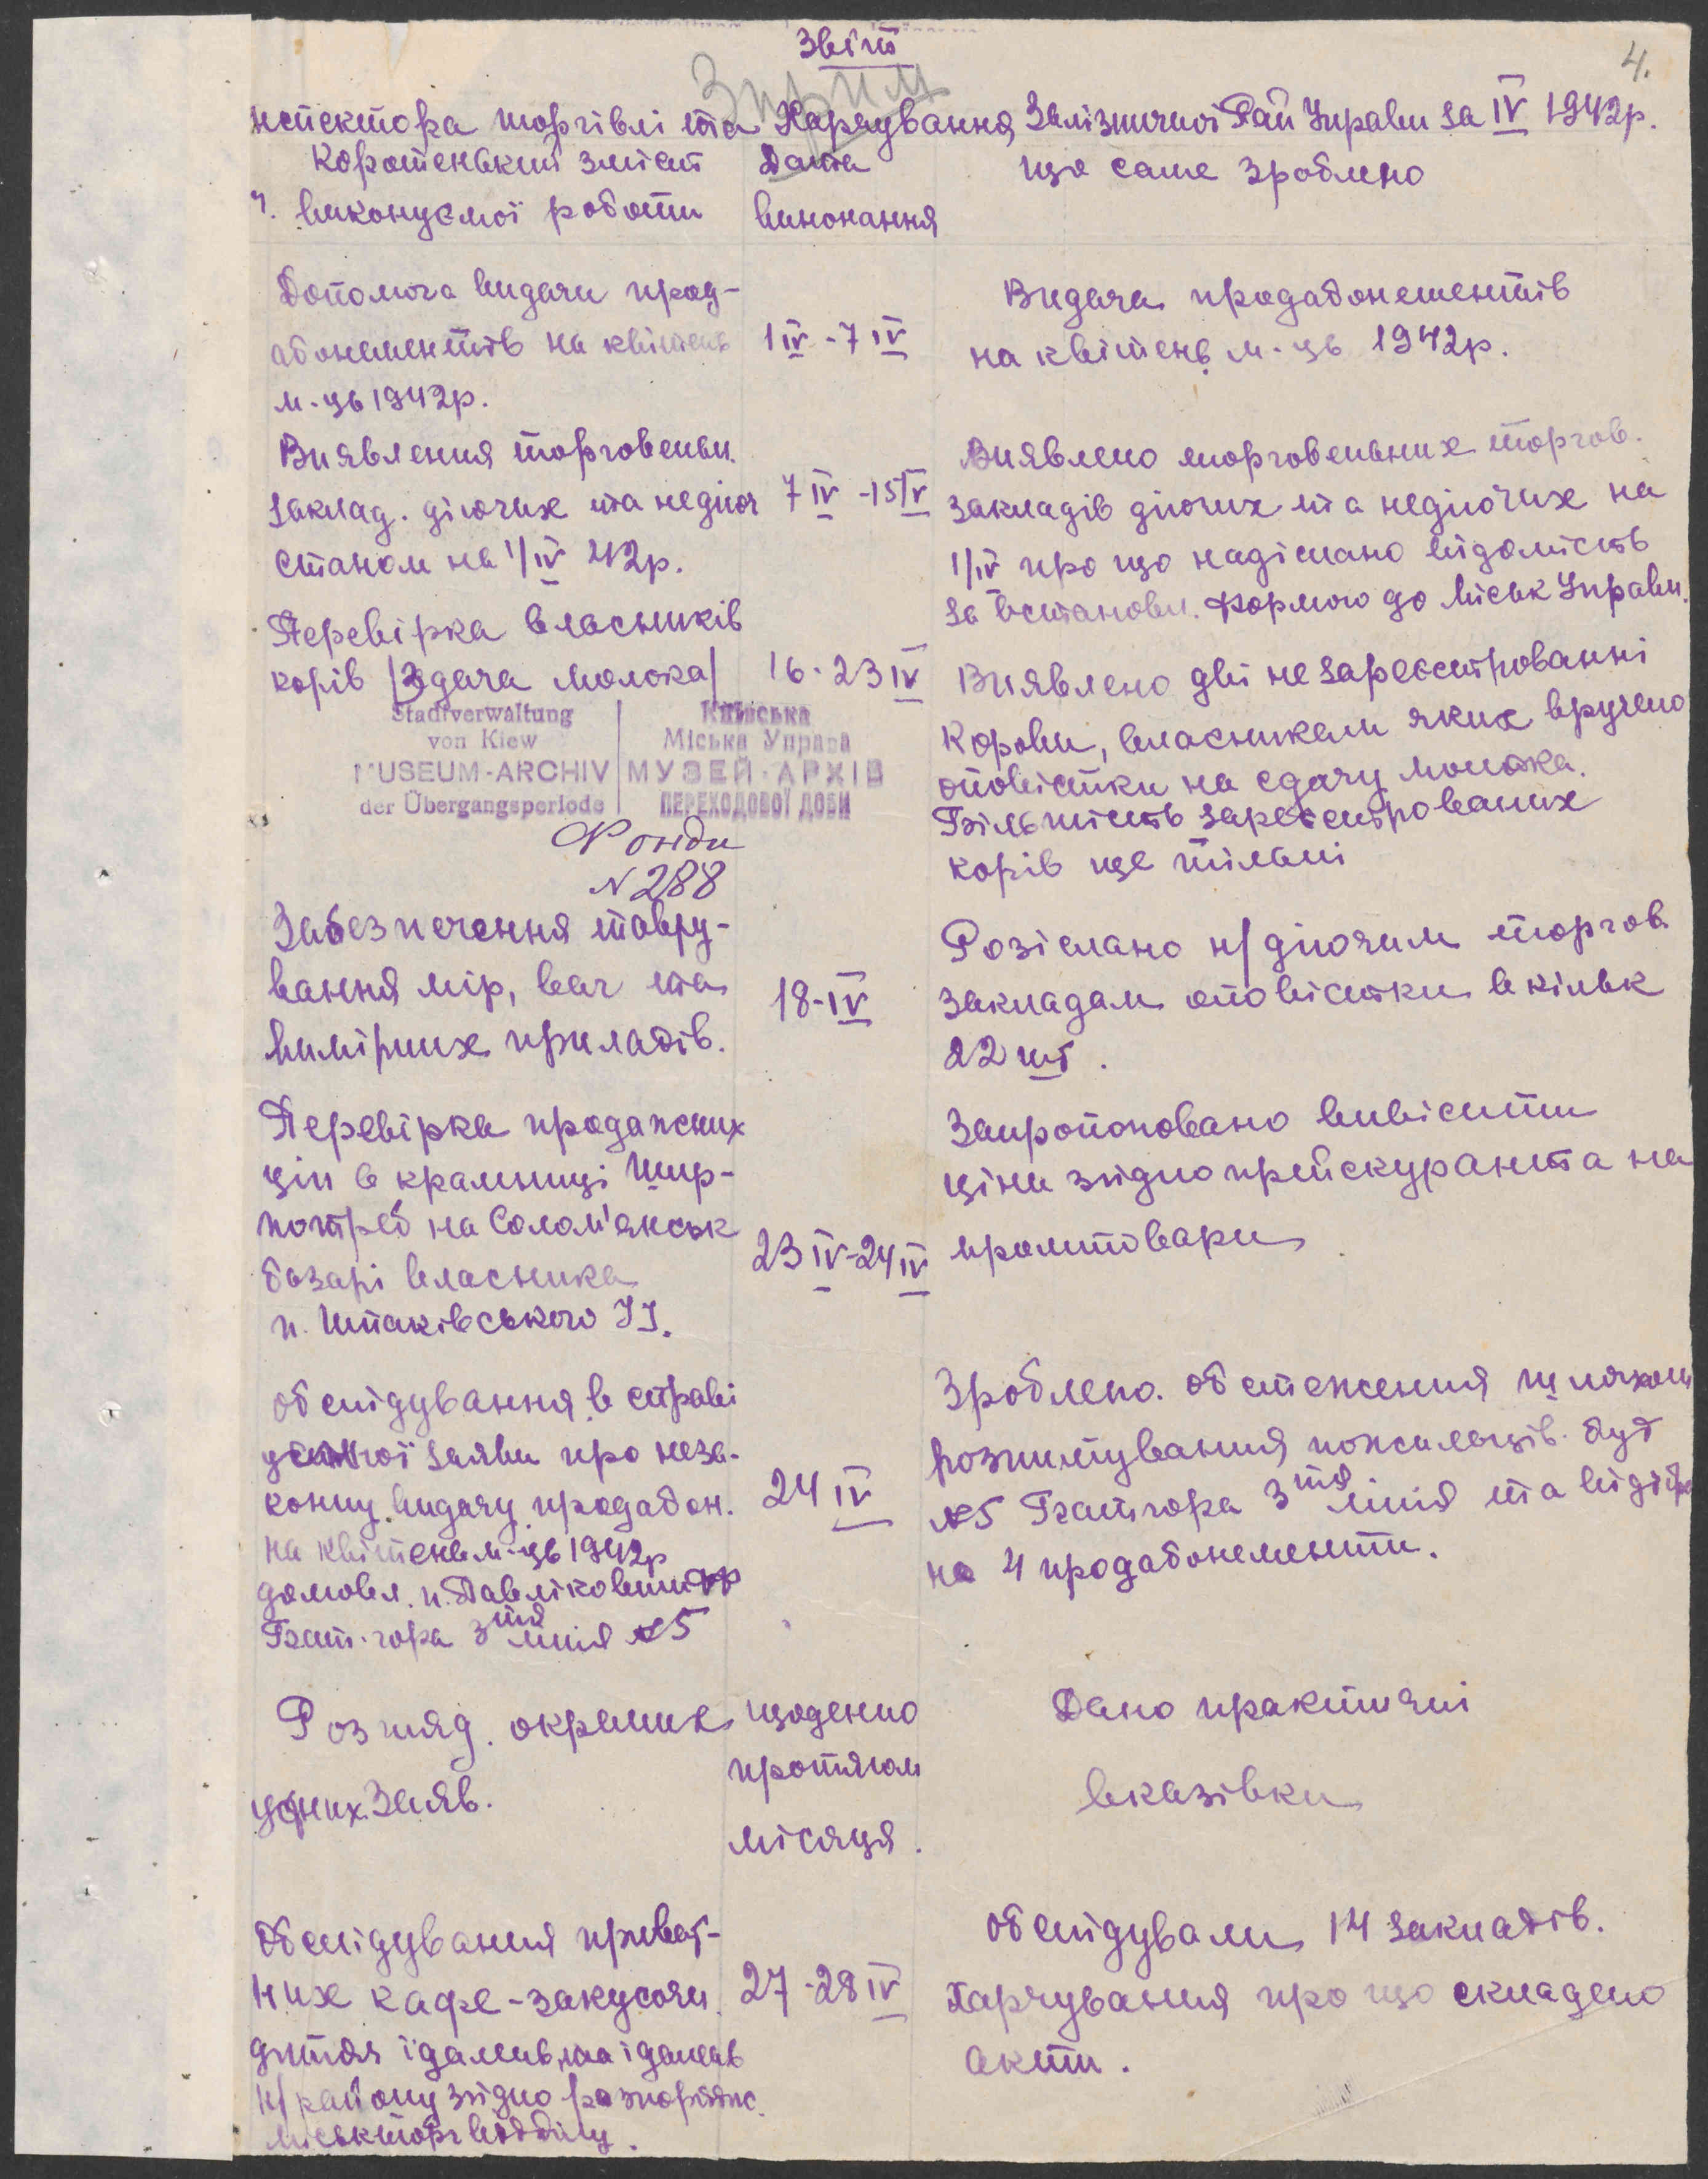 Звіт
4.
нспектора торгівлі та Харчування Залізничної Рай Управи за IV 1942р.
Коротенький зміст
виконуємої роботи
Дата
виконання
що саме зроблено
Допомога видачи прод-
абонементів на квітень
м-ць 1942р.
1 IV - 7 IV
Видача продабонементів
на квітень м-ць 1942р.
Виявлення торговельн.
заклад. діючих та недіюч
станом на 1/IV 42р.
7 IV - 15 IV
Виявлено торговельних торгов.
закладів діючих та недіючих на
1/IV про що надіслано відомість
за встановл. формою до Міськ Управи.
Перевірка власників
корів /здача молока/
16-23 IV
Виявлено дві не зареєстрованні
корови, власникам яких вручено
оповістки на сдачу молока.
Більшість зареєстрованих
корів ще тільні
Stadtverwaltung
von Kiew
MUSEUM-ARCHIV
der Übergangsperiode
Київська
Міська Управа
МУЗЕЙ-АРХІВ
ПЕРЕХОДОВОЇ ДОБИ
Фонди
N 288
Забезпечення тавру-
вання мір, ваг та
вимірних приладів.
18-IV
Розіслано н/діючим торгов.
закладам оповістки в кільк
22 шт.
Перевірка продажних
цін в крамниці Шир-
потреб на Солом'янськ
базарі власника
п. Шпаківського
23 IV-24 IV
Запропоновано вивісити
ціни згідно прейскуранта на
промтовари
Обслідування в справі
устної заяви про неза-
конну видачу продабон.
на квітень м-ць 1942р
домовл. п.
Бат. гора 3тя лінія №5
24 IV
Зроблено. обстеження шляхом
розпитування пожильців. буд
№5 Батигора 3тя лінія та
на 4 продабонементи.
Розгляд. окремих
усних Заяв.
щоденно
протягом
місяця.
Дано практичні
вказівки
Обслідування приват-
них кафе-закусочн
дитяч їдалень, та їдалень
н/району згідно розпорядж.
міськторгвідділу.
27-28 IV
Обслідували 14 закладів.
Харчування про що складено
акти.